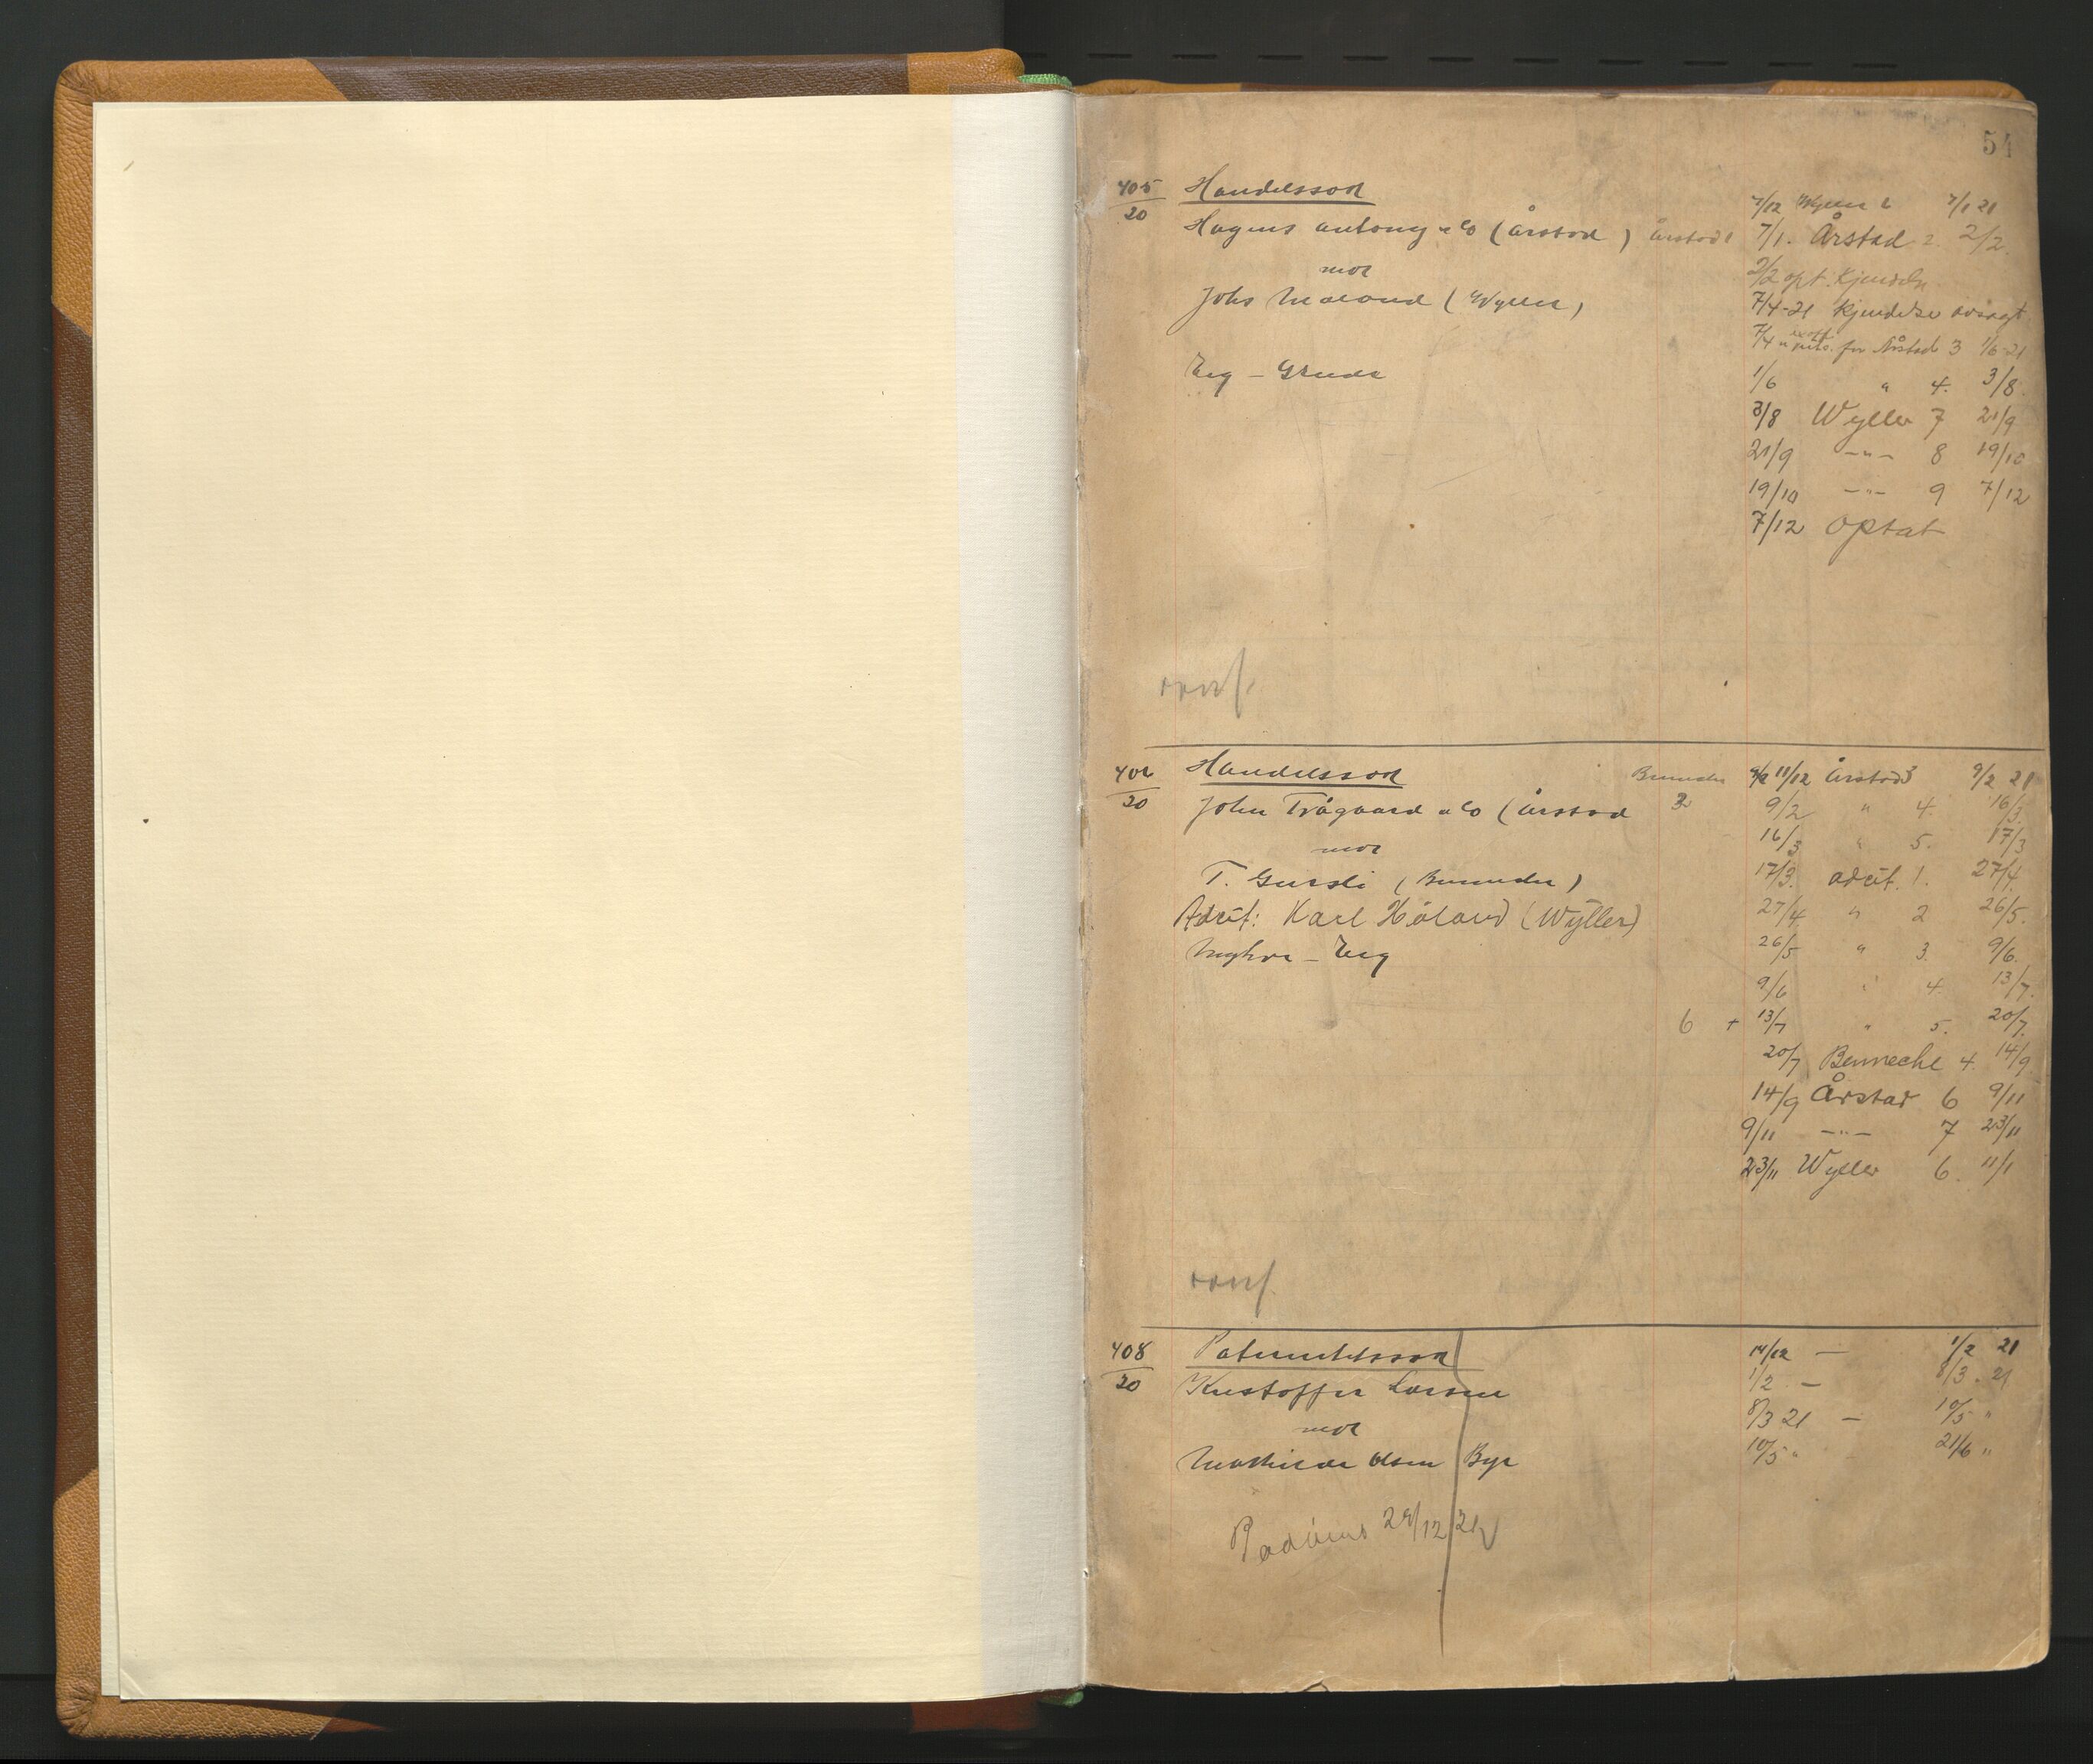 54
405/20 Handelssak
Hagens autong & Co (Årstad) Årstad 1
mot
Johs Maeland (Wyller)
Eeg - Grude
7/12 Wyller 2 7/1 21
7/1. Årstad 2. 2/2.
2/2 opt. Kjendelse
7/4-21 Kjendelse avsagt
7/4 for Årstad 3 1/6-21
1/6 " 4. 3/8.
3/8 Wyller 7 21/9
21/9 -"- 8 19/10
19/10 -"- 9 7/12
7/12 Optat
overf.
406/20 Handelssak
John Trågaard & Co (Årstad
mot
T. Gursli (Bennecke)
Adcit: Karl Håland (Wyller)
- Eeg
Bennecke
3
6 +
11/12 Årstad 3 9/2 21
9/2 " 4. 16/3.
16/3 " 5. 17/3
17/3. adcit. 1. 27/4.
27/4 " 2 26/5.
26/5 " 3. 9/6.
9/6 " 4. 13/7.
13/7 " 5. 20/7.
20/7 Benneche 4. 14/9
14/9 Årstad 6 9/11
9/11 -"- 7 23/11
23/11 Wyller 6. 11/1
overf.
408/20 Paternitetssak
Kristoffer Larsen
mot
Mathilde Olsen Bye
14/12 — 1/2 21
1/2 — 8/3. 21
8/3 21 — 10/5 "
10/5 " 21/6 "
29/12 21